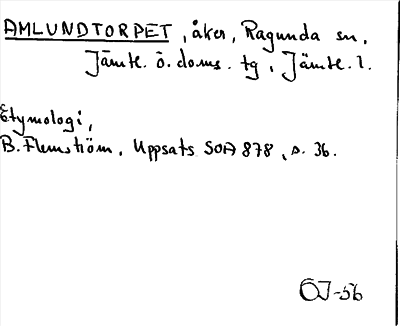 AMLUNDTORPET, åker, Ragunda sn,
Jämtl. ö. doms. tg, Jämtl. l.
Etymologi,
B. Flemström, Uppsats SOA 878, s. 36.
ÖJ-56